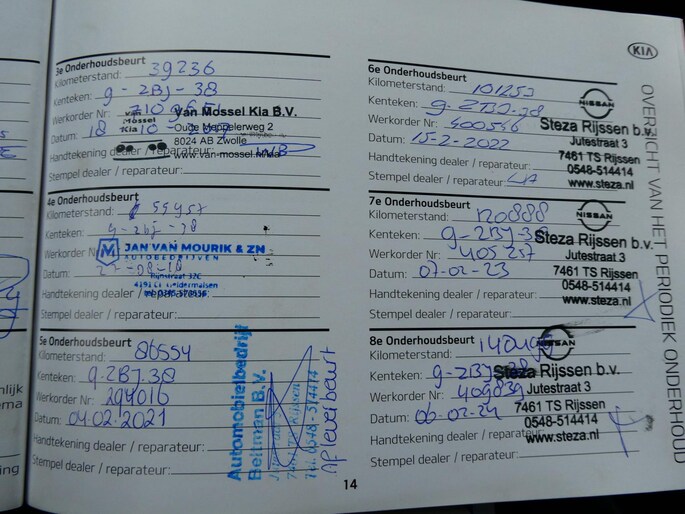 3e Onderhoudsbeurt
Kilometerstand: 39236
Kenteken: 9-ZBJ-38
Werkorder Nr:
Datum: 18
Handtekening dealer / reparateur:
Stempel dealer / reparateur:
van Mossel Kia
Van Mossel Kia B.V.
Oude Meppelerweg 2
8024 AB Zwolle
www.van-mossel.nl/kia
4e Onderhoudsbeurt
Kilometerstand: 55957
Kenteken: 9-ZBJ-38
Werkorder Nr
Datum:
Handtekening dealer / reparateur:
Stempel dealer / reparateur:
JAN VAN MOURIK & ZN
AUTOBEDRIJVEN
Rijnstraat 32C
Geldermalsen
5e Onderhoudsbeurt
Kilometerstand: 86554
Kenteken: 9-ZBJ-38
Werkorder Nr: 294016
Datum: 04-02-2021
Handtekening dealer / reparateur:
Stempel dealer / reparateur:
Automobielbedrijf
Beltman B.V.
Tel. 0548-514414
afleverbeurt
6e Onderhoudsbeurt
Kilometerstand: 101253
Kenteken: 9-ZBJ-38
Werkorder Nr: 400546
Datum: 15-2-2022
Handtekening dealer / reparateur:
Stempel dealer / reparateur:
NISSAN
Steza Rijssen b.v.
Jutestraat 3
7461 TS Rijssen
0548-514414
www.steza.nl
7e Onderhoudsbeurt
Kilometerstand: 120888
Kenteken: 9-ZBJ-38
Werkorder Nr: 405257
Datum: 07-02-23
Handtekening dealer / reparateur:
Stempel dealer / reparateur:
NISSAN
Steza Rijssen b.v.
Jutestraat 3
7461 TS Rijssen
0548-514414
www.steza.nl
8e Onderhoudsbeurt
Kilometerstand:
Kenteken: 9-ZBJ-38
Werkorder Nr: 409839
Datum: 06-02-24
Handtekening dealer / reparateur:
Stempel dealer / reparateur:
NISSAN
Steza Rijssen b.v.
Jutestraat 3
7461 TS Rijssen
0548-514414
www.steza.nl
KIA
OVERZICHT VAN HET PERIODIEK ONDERHOUD
14